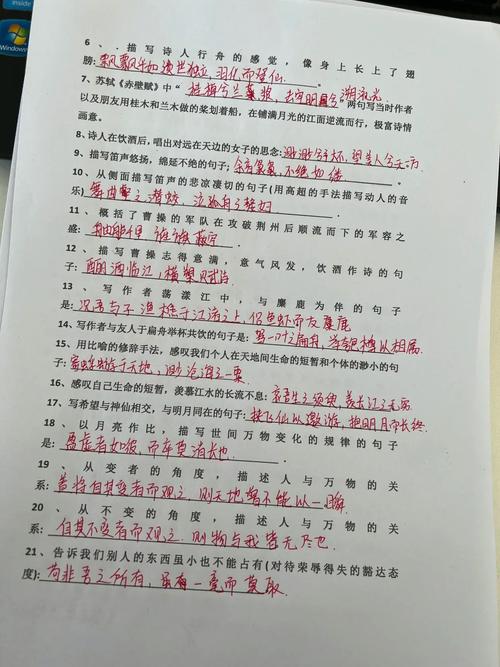 inside
Windows
6、.描写诗人行舟的感觉，像身上长上了翅
膀:飘飘乎如遗世独立，羽化而登仙.
7、苏轼《赤壁赋》中“桂棹兮兰桨，击空明兮溯流光”两句写当时作者
以及朋友用桂木和兰木做的桨划着船，在铺满月光的江面逆流而行，极富诗情
画意。
8、诗人在饮酒后，唱出对远在天边的女子的思念:渺渺兮予怀，望美人兮天一方
9、描写笛声悠扬，绵延不绝的句子:余音袅袅，不绝如缕
10、从侧面描写笛声的悲凉凄切的句子(用高超的手法描写动人的音
乐)舞幽壑之潜蛟，泣孤舟之嫠妇.
11、概括了曹操的军队在攻破荆州后顺流而下的军容之
盛:舳舻千里，旌旗蔽空
12、描写曹操志得意满，意气风发，饮酒作诗的句
子:酾酒临江，横槊赋诗
13、写作者荡漾江中，与麋鹿为伴的句子
是:况吾与子渔樵于江渚之上，侣鱼虾而友麋鹿
14、写作者与友人于扁舟举杯共饮的句子是:驾一叶之扁舟，举匏樽以相属.
15、用比喻的修辞手法，感叹我们个人在天地间生命的短暂和个体的渺小的句
子:寄蜉蝣于天地，渺沧海之一粟
16、感叹自己生命的短暂，羡慕江水的长流不息:哀吾生之须臾，羡长江之无穷
17、写希望与神仙相交，与明月同在的句子:挟飞仙以遨游，抱明月而长终.
18、以月亮作比，描写世间万物变化的规律的句子
是:盈虚者如彼，而卒莫消长也
19、从变者的角度，描述人与万物的关
系:盖将自其变者而观之，则天地曾不能以一瞬
20、从不变的角度，描述人与万物的关
系:自其不变者而观之，则物与我皆无尽也
21、告诉我们别人的东西虽小也不能占有(对待荣辱得失的豁达态
度):苟非吾之所有，虽一毫而莫取.